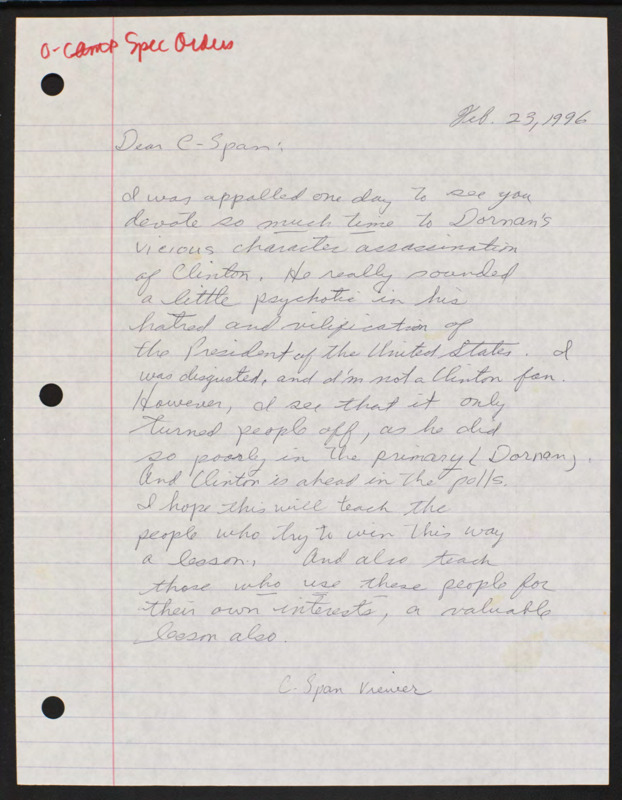 O-Camp Spec Orders
Feb. 23, 1996
Dear C-Span:
I was appalled one day to see you
devote so much time to Dornan's
vicious character assassination
of Clinton. He really sounded
a little psychotic in his
hatred and vilification of
the President of the United States. I
was disgusted, and I'm not a Clinton fan.
However, I see that it only
turned people off, as he did
so poorly in the primary (Dornan).
And Clinton is ahead in the polls.
I hope this will teach the
people who try to win this way
a lesson. And also teach
those who use these people for
their own interests, a valuable
lesson also.
C-Span Viewer